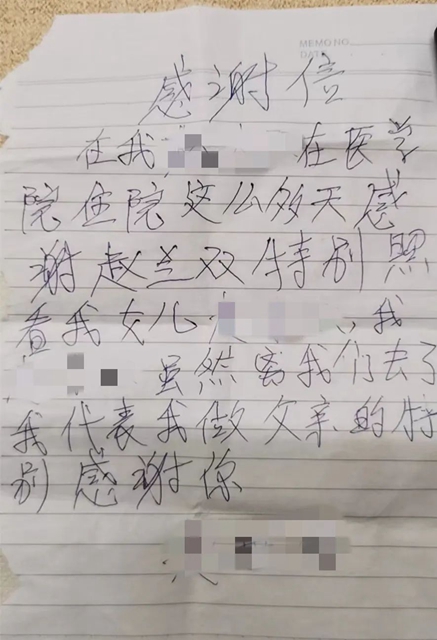 MEMO NO.
DATE
感谢信
在我 在医学
院住院这么多天感
谢赵兰双特别照
看我女儿 我
虽然离我们去了
我代表我做父亲的特
别感谢你